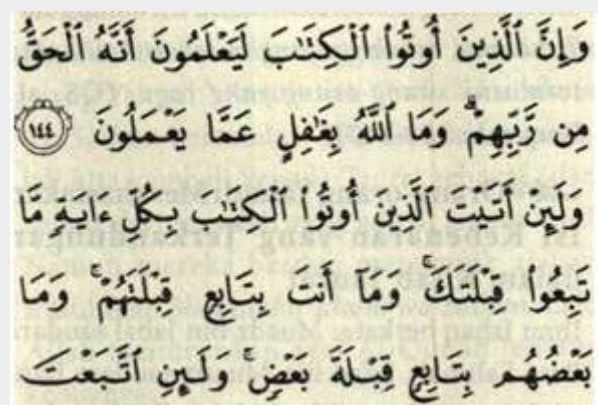 وَإِنَّ ٱلَّذِينَ أُوتُوا۟ ٱلْكِتَٰبَ لَيَعْلَمُونَ أَنَّهُ ٱلْحَقُّ
مِن رَّبِّهِمْ ۗ وَمَا ٱللَّهُ بِغَٰفِلٍ عَمَّا يَعْمَلُونَ ١٤٤
وَلَئِنْ أَتَيْتَ ٱلَّذِينَ أُوتُوا۟ ٱلْكِتَٰبَ بِكُلِّ ءَايَةٍ مَّا
تَبِعُوا۟ قِبْلَتَكَ ۚ وَمَآ أَنتَ بِتَابِعٍ قِبْلَتَهُمْ ۚ وَمَا
بَعْضُهُم بِتَابِعٍ قِبْلَةَ بَعْضٍ ۚ وَلَئِنِ ٱتَّبَعْتَ